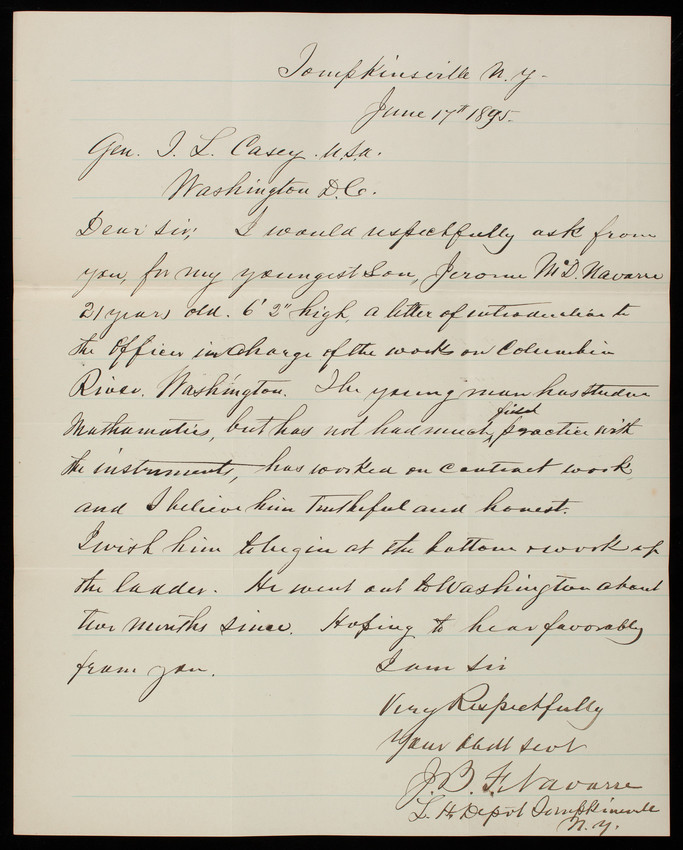 Tompkinsville N.Y.
June 17th 1895.
Gen. T. L. Casey U.S.A.
Washington D.C.
Dear Sir; I would respectfully ask from
you, for my youngest Son, Jerome McD. Navarre
21 years old. 6' 2" high, a letter of introduction to
the Officer in charge of the works on Columbia
River. Washington. The young man has studied
Mathamatics, but has not had much field practice with
the instruments, has worked on contract work,
and I believe him truthful and honest.
I wish him to begin at the bottom & work up
the ladder. He went out to Washington about
two months since. Hoping to hear favorably
from you. I am Sir
Very Respectfully
Your Obdt Servt
J. B. F. Navarre
L. H. Depot Tompkinsville
N.Y.